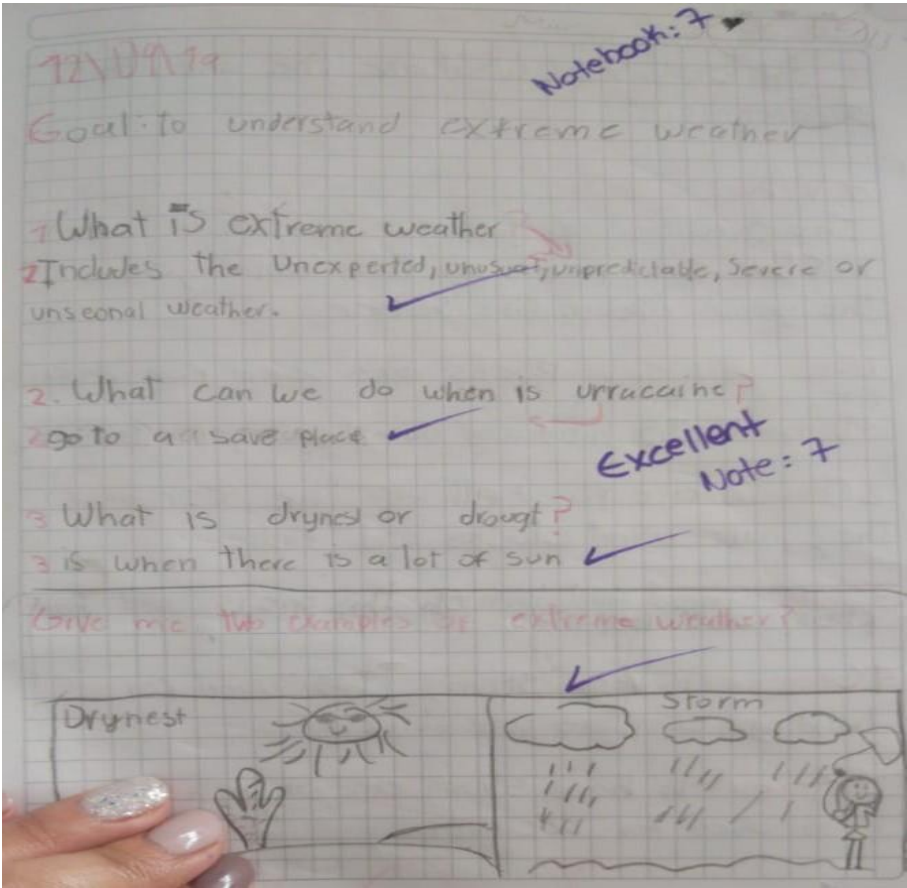 Notebook: 7
Goal: to understand extreme weather
1 What is extreme weather
2 Includes the Unexperted, unusual, unpredictable, Severe or
unseonal weather.
2. What can we do when is urracaine?
2 go to a save place
Excellent
Note: 7
3 What is drynest or drougt?
3 is when there is a lot of sun
Give me two examples of extreme weather?
Drynest
Storm